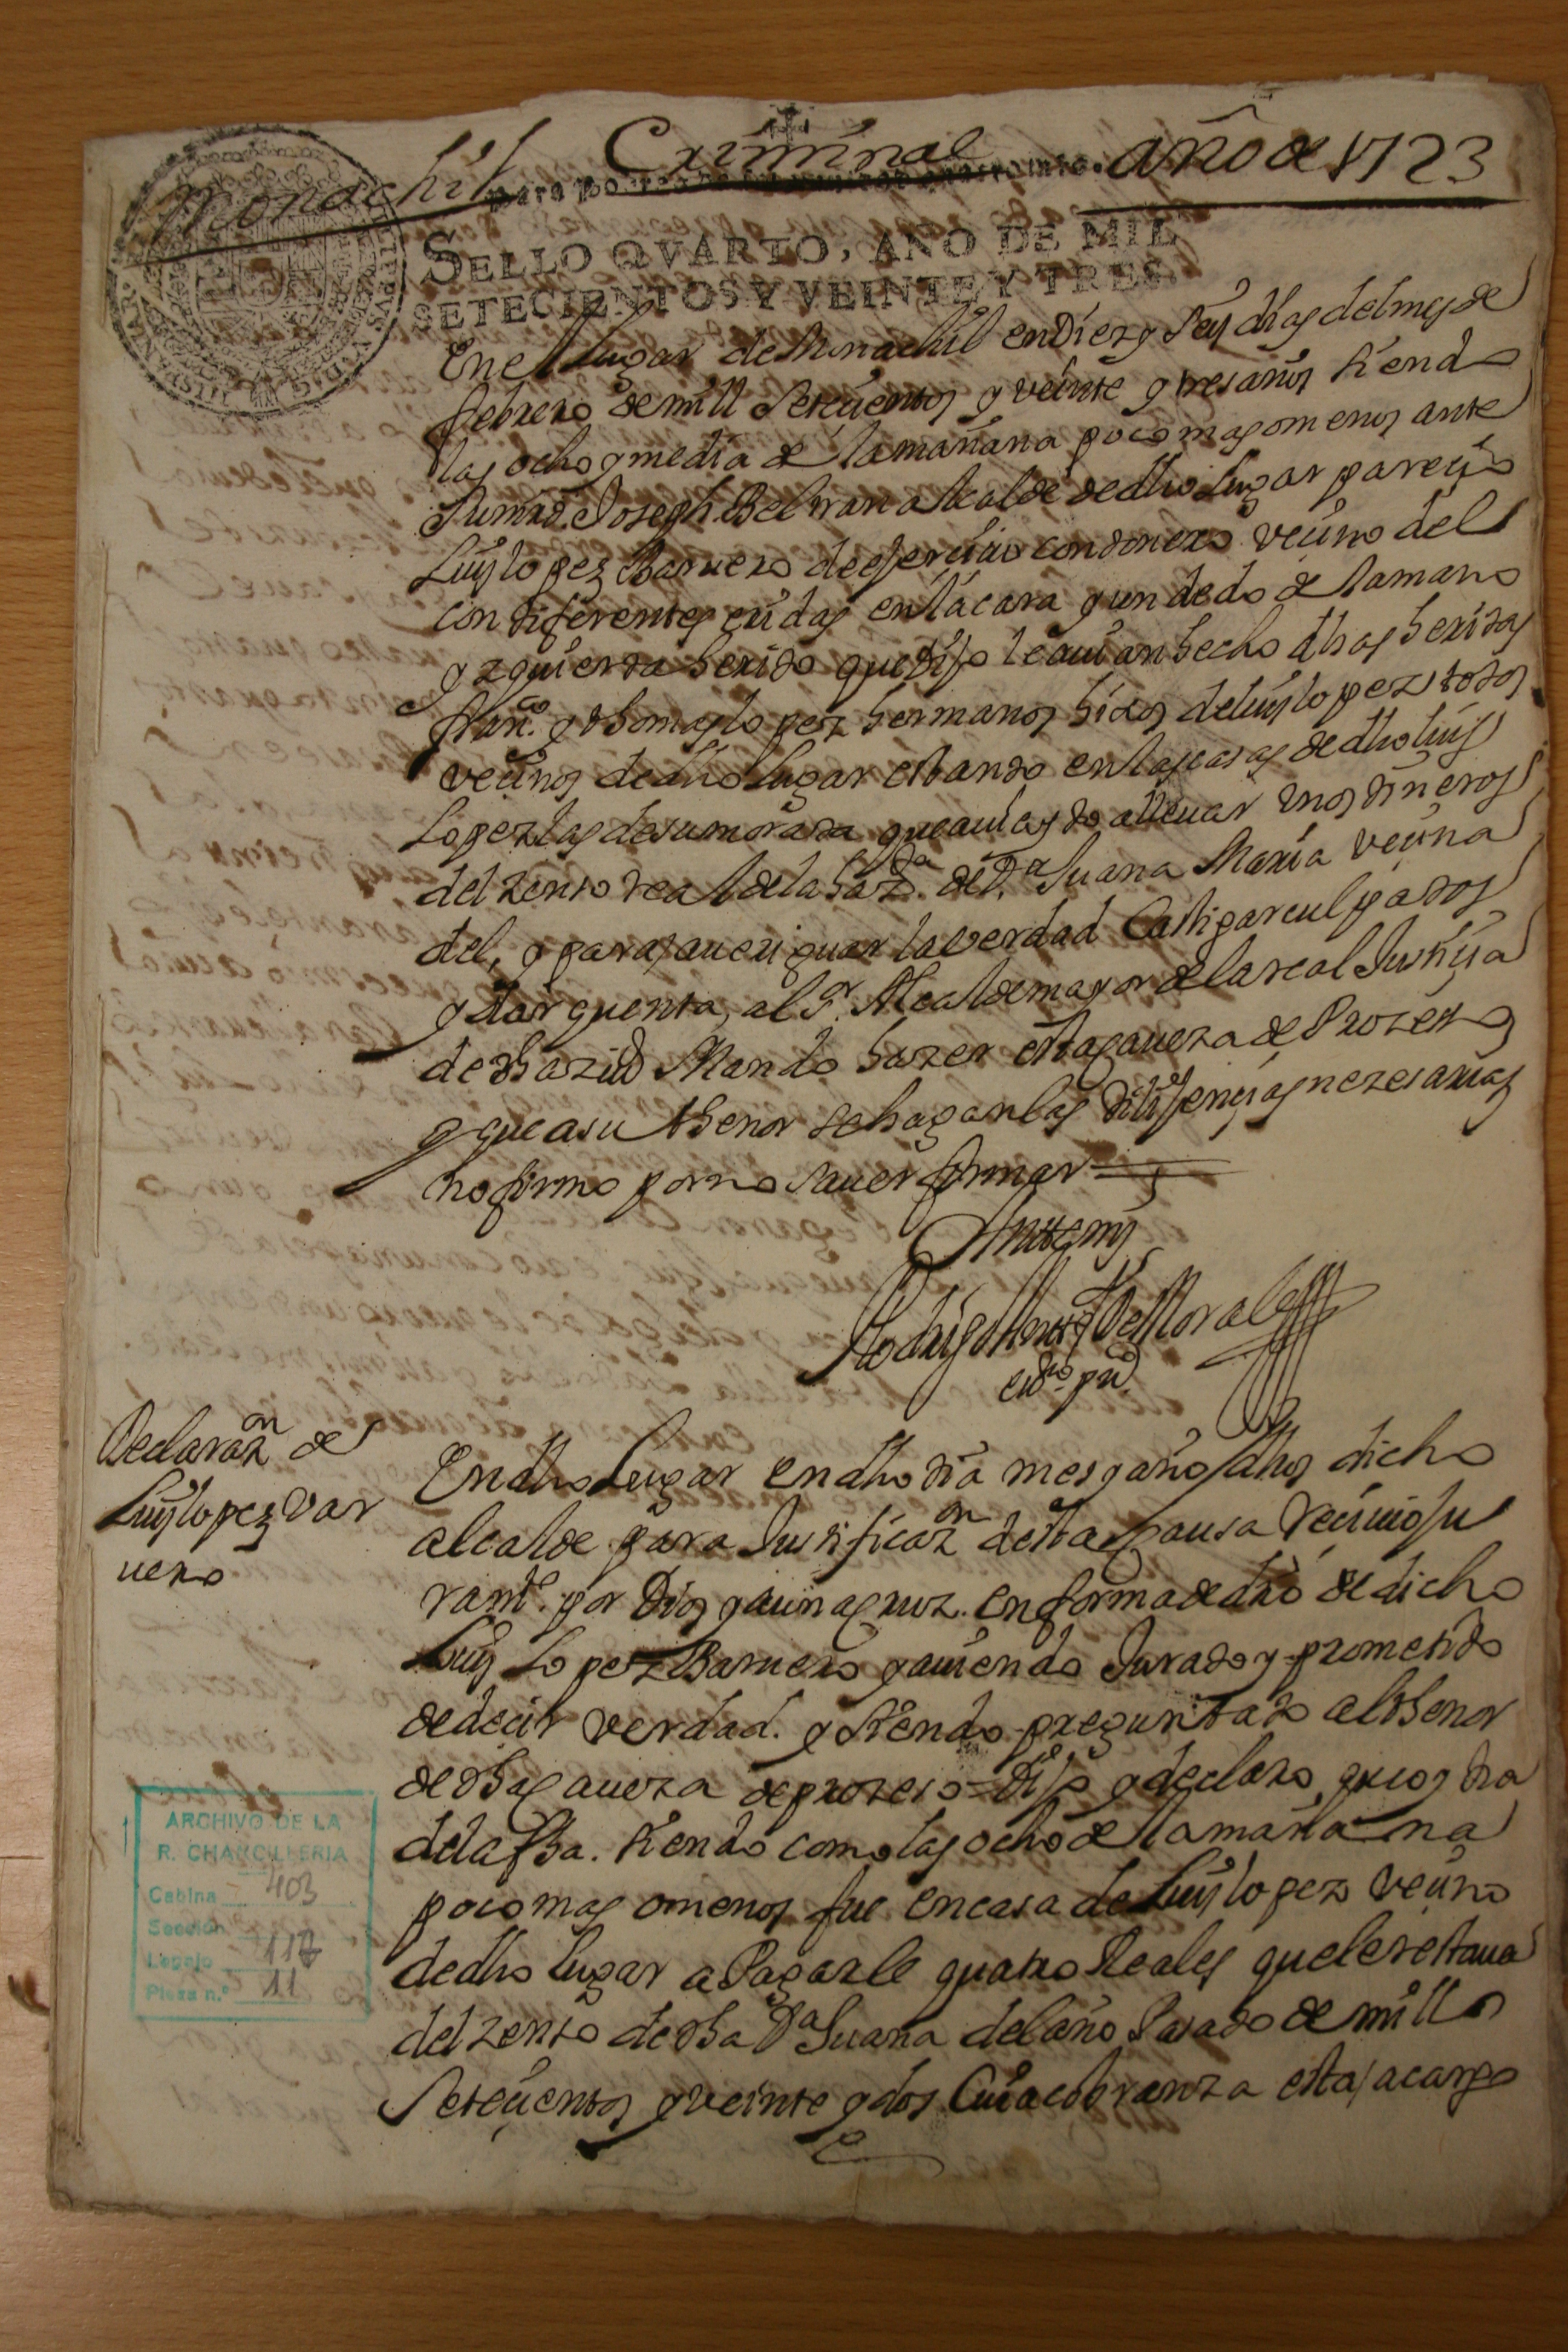 Monachil Criminal año de 1723
SELLO QVARTO, AÑO DE MIL
SETECIENTOS Y VEINTE Y TRES.
En el lugar de Monachil en Diez y seis dias del mes de
febrero de mill setecientos y veinte y tres años siendo
las ocho y media de la mañana poco mas o menos ante
su mrd. Joseph Beltran alcalde de dho lugar parecio
Luis lopez Barnero de exercicio vecino del
con diferentes eridas en la cara y un dedo de la mano
yzquierda herido que dijo le auian hecho dhas heridas
fran.co y thomas lopez hermanos hijos de luis lopez todos
vecinos de dho lugar estando en las casas de dho luis
Lopez las de su morada que auia ydo a lleuar unos dineros
del zenso real de la haz.da de D.a Juana Maria vecina
del, y para aueriguar la verdad Castigar culpados
y dar quenta, al S.r Alcalde mayor de la real Justicia
de dha ziud Mando hazer esta caueza de Prozeso
y que a su thenor se hagan las dilijencias nezesarias
no firmo por no sauer firmar
Ante mi
Rodrigo de Morales
esno. pu.co
Declarazon de
Luis lopez var
nero
En dho Lugar en dho dia mes y año dhos dicho
alcalde para Justificazon desta causa reciuio Ju
ramt.o por Dios y a una cruz en forma de dro de dicho
Luis Lopez Barnero y auiendo Jurado y prometido
de decir verdad. y siendo preguntado al thenor
de dha caueza de prozeso = Dijo y declaro, que oy dia
de la fha. siendo como las ocho de la mañana
poco mas o menos fue en casa de Luis lopez vecino
de dho lugar a Pagarle quatro Reales que le restaua
del zenso de dha D.a Juana del año Pasado de mill
Setecientos y veinte y dos Cuia cobranza esta a cargo
ARCHIVO DE LA
R. CHANCILLERIA
Cabina 403
Sección
Legajo 117
Pieza n.º 11